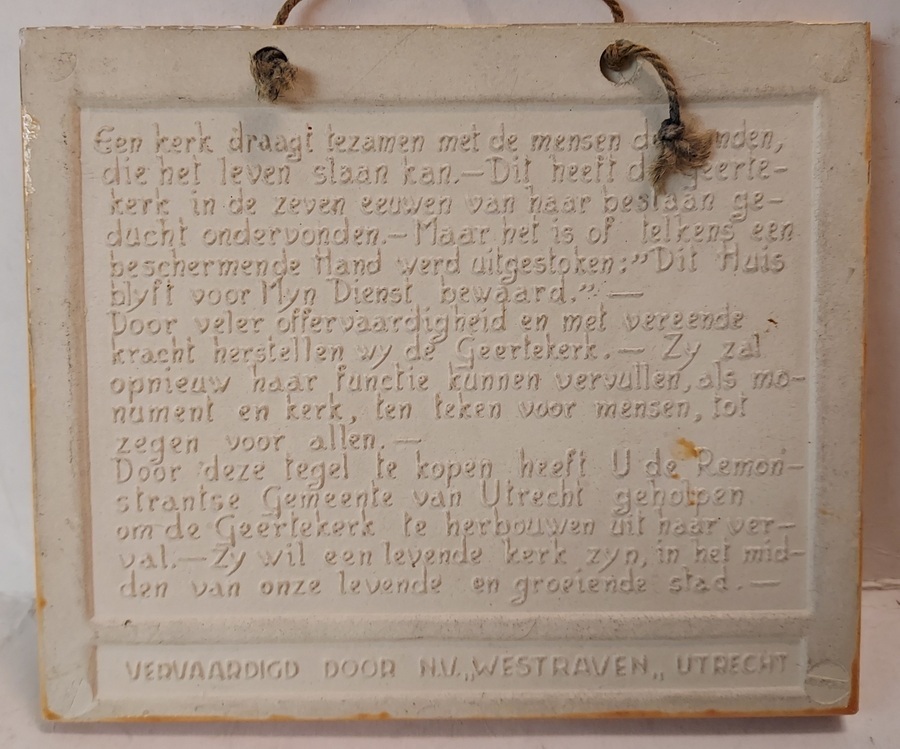 Een kerk draagt tezamen met de mensen de
die het leven slaan kan.— Dit heeft de Geerte-
kerk in de zeven eeuwen van haar bestaan ge-
ducht ondervonden.— Maar het is of telkens een
beschermende Hand werd uitgestoken:”Dit Huis
blyft voor Myn Dienst bewaard.” —
Door veler offervaardigheid en met vereende
kracht herstellen wy de Geertekerk.— Zy zal
opnieuw haar functie kunnen vervullen, als mo-
nument en kerk, ten teken voor mensen, tot
zegen voor allen. —
Door deze tegel te kopen heeft U de Remon-
strantse Gemeente van Utrecht geholpen
om de Geertekerk te herbouwen uit haar ver-
val.— Zy wil een levende kerk zyn, in het mid-
den van onze levende en groeiende stad. —
VERVAARDIGD DOOR N.V. „WESTRAVEN„ UTRECHT